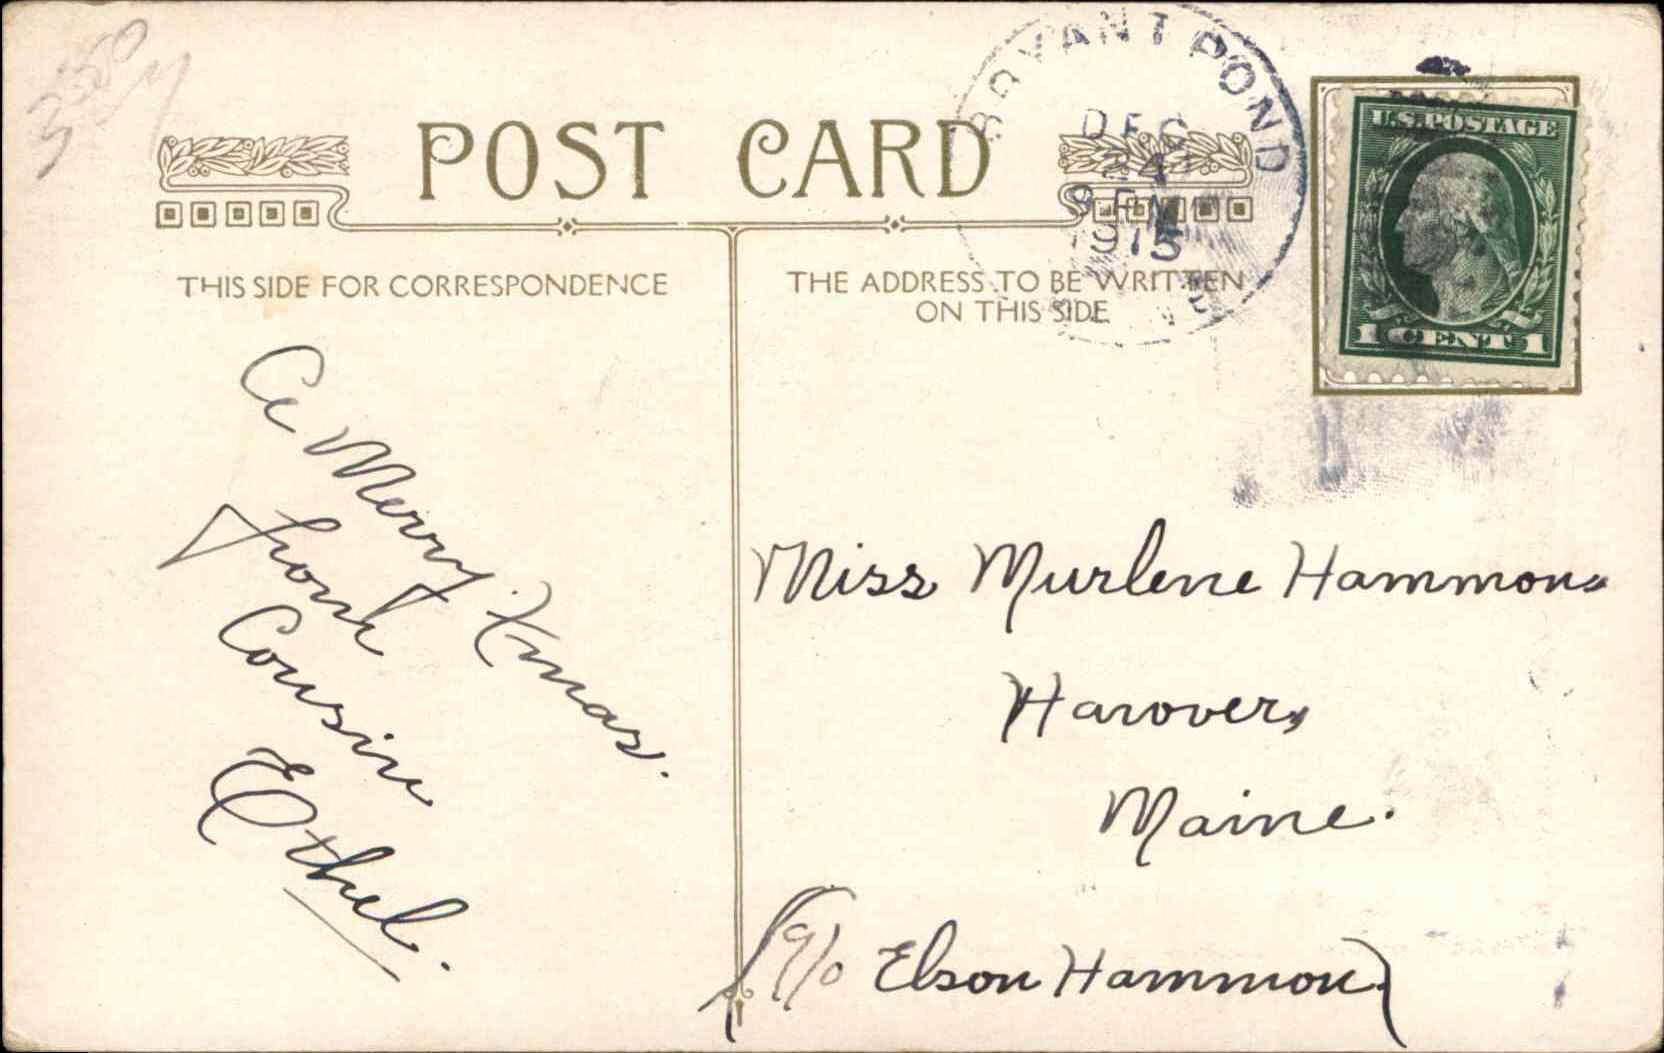 3550
POST CARD
BRYANT POND
DEC
24
9 PM
1915
U.S. POSTAGE
1 CENT 1
THIS SIDE FOR CORRESPONDENCE
THE ADDRESS TO BE WRITTEN
ON THIS SIDE
A Merry Xmas.
from
Cousin
Ethel.
Miss Murlene Hammons
Hanover,
Maine.
(c/o Elson Hammon)